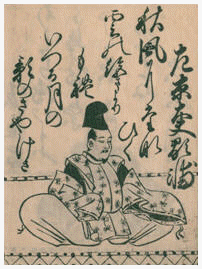 左京大夫顕輔
秋風にたな
ひく
雲の絶まより
もれ
いつる月の
影のさやけさ